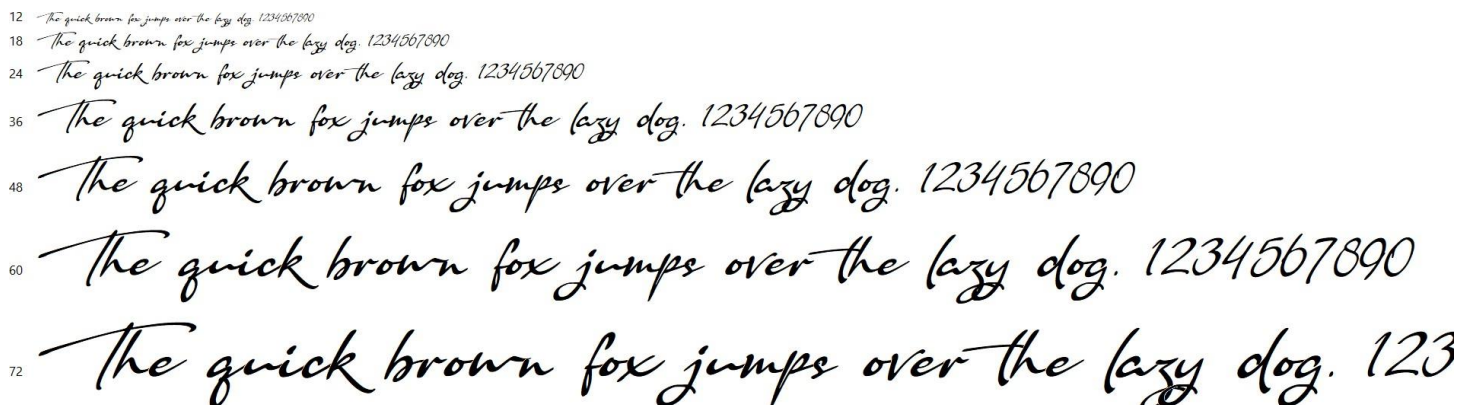 12 The quick brown fox jumps over the lazy dog. 1234567890
18 The quick brown fox jumps over the lazy dog. 1234567890
24 The quick brown fox jumps over the lazy dog. 1234567890
36 The quick brown fox jumps over the lazy dog. 1234567890
48 The quick brown fox jumps over the lazy dog. 1234567890
60 The quick brown fox jumps over the lazy dog. 1234567890
72 The quick brown fox jumps over the lazy dog. 123